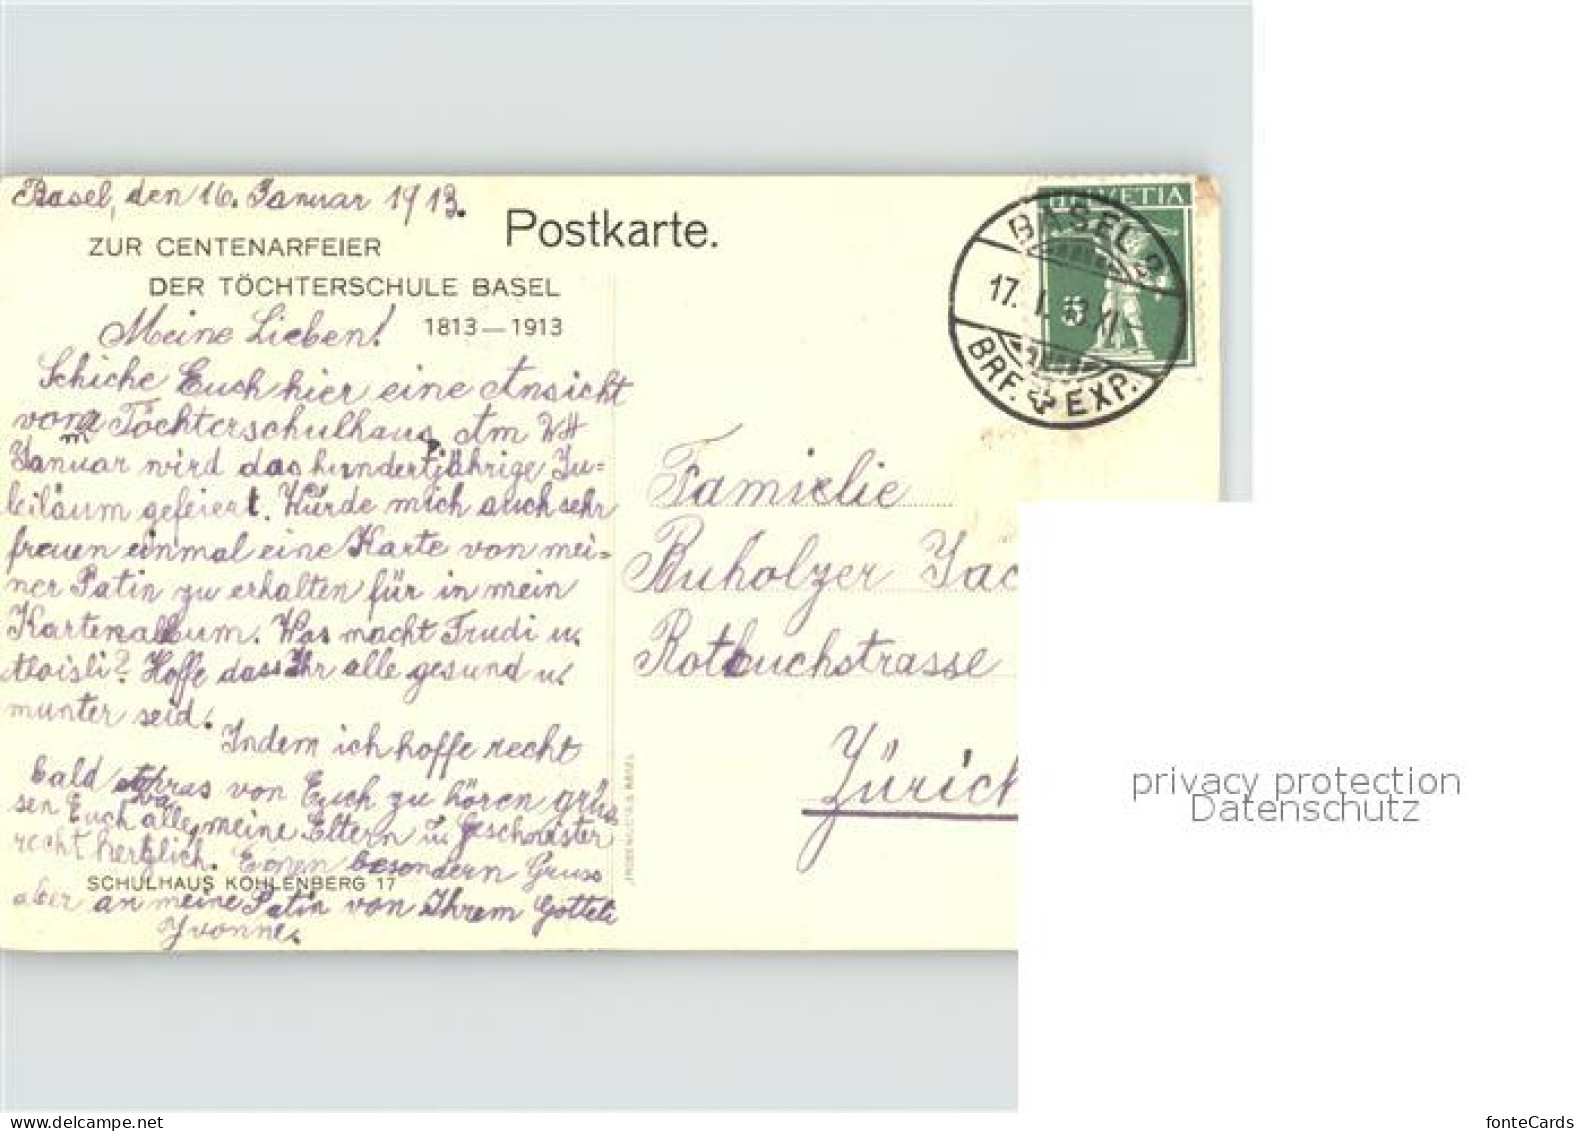 Basel, den 16. Januar 1913.
Postkarte.
ZUR CENTENARFEIER
DER TÖCHTERSCHULE BASEL
1813—1913
Meine Lieben!
Schicke Euch hier eine Ansicht
vom Töchterschulhaus. Am
Januar wird das hundertjährige Ju=
biläum gefeiert. Würde mich auch sehr
freuen einmal eine Karte von mei=
ner Patin zu erhalten für in mein
Kartenalbum. Was macht Trudi u.
Aloisli? Hoffe dass Ihr alle gesund u.
munter seid.
Indem ich hoffe recht
bald etwas von Euch zu hören grüs
sen Euch alle, meine Eltern u. Geschwister
recht herzlich. Einen besondern Gruss
SCHULHAUS KOHLENBERG 17
aber an meine Patin von Ihrem Gotteli
Yvonne.
HELVETIA
5
BASEL 2
17. I. 13. XI
BRF. EXP.
Familie
Buholzer Jac
Rotbuchstrasse
Zürich
privacy protection
Datenschutz
fonteCards